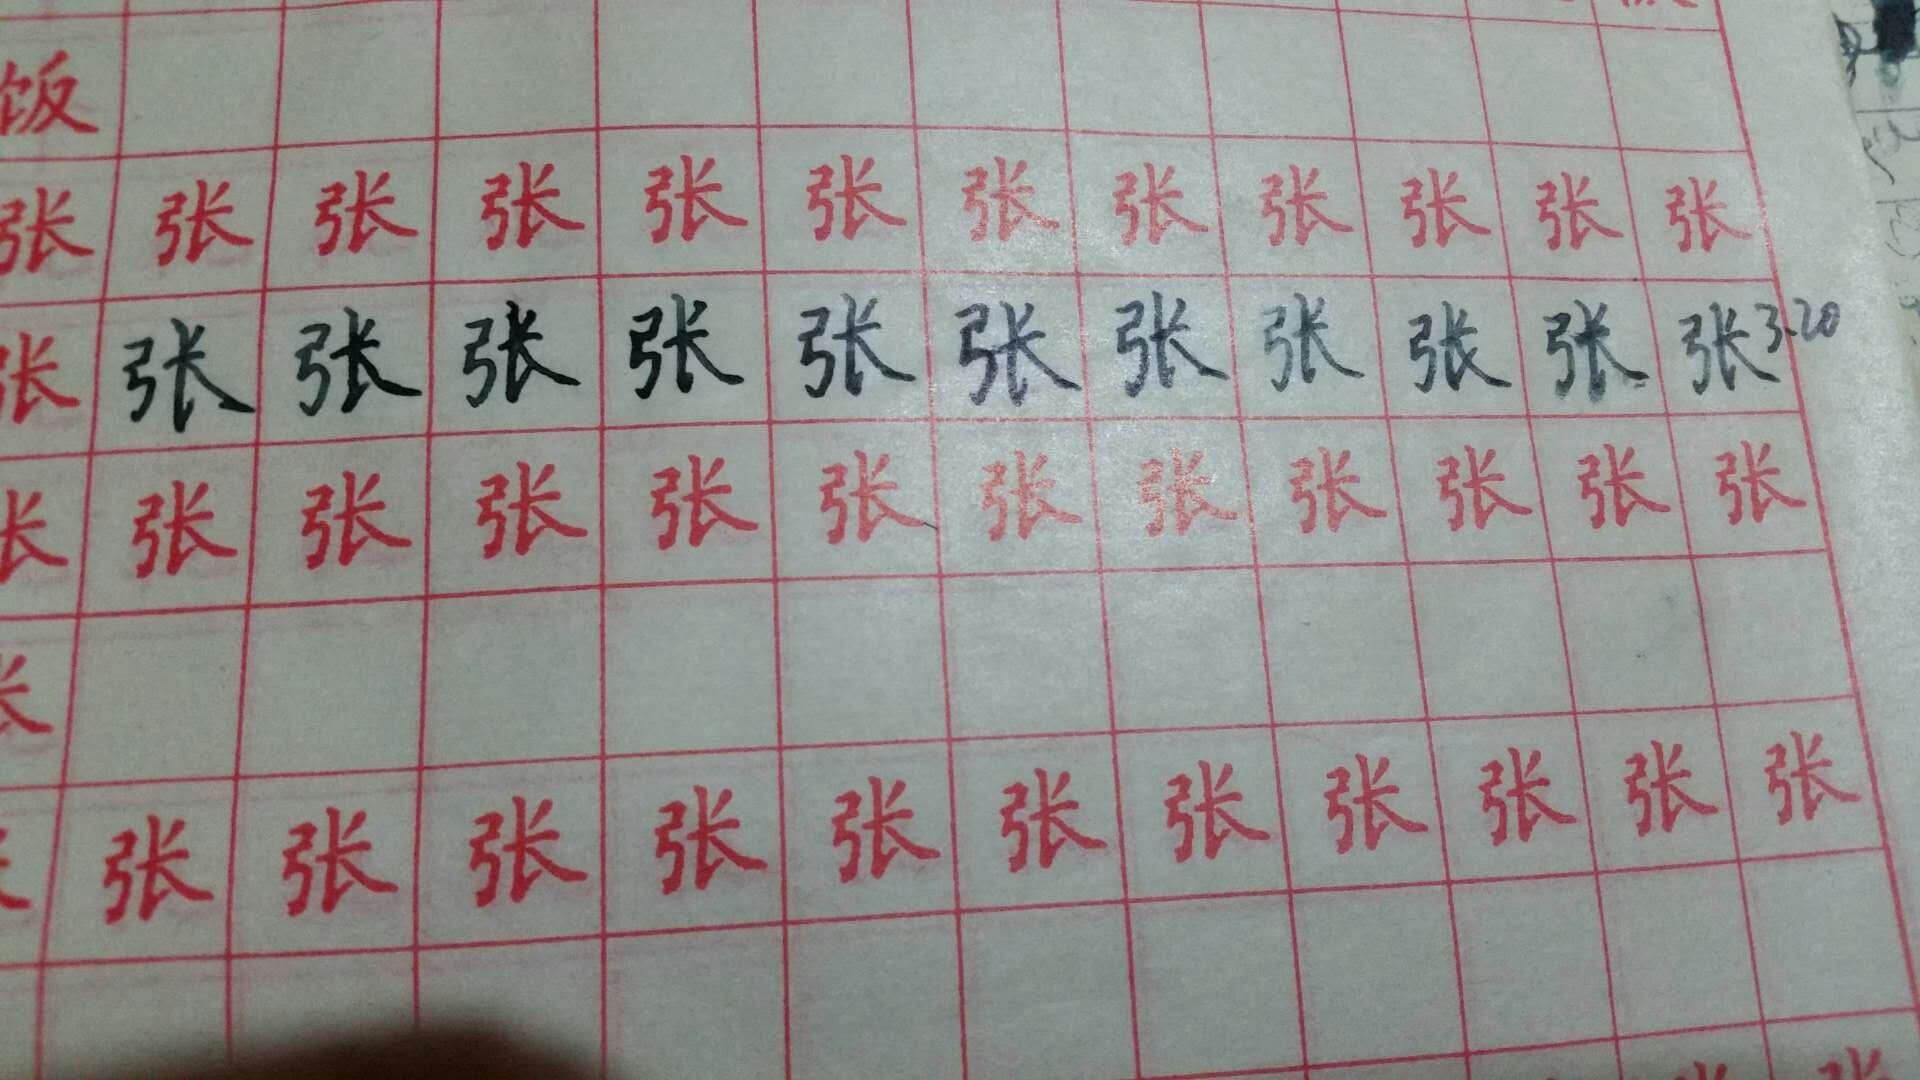 饭
张 张 张 张 张 张 张 张 张 张 张 张
张 张 张 张 张 张 张 张 张 张 张 张 3.20
张 张 张 张 张 张 张 张 张 张 张
张 张 张 张 张 张 张 张 张 张 张